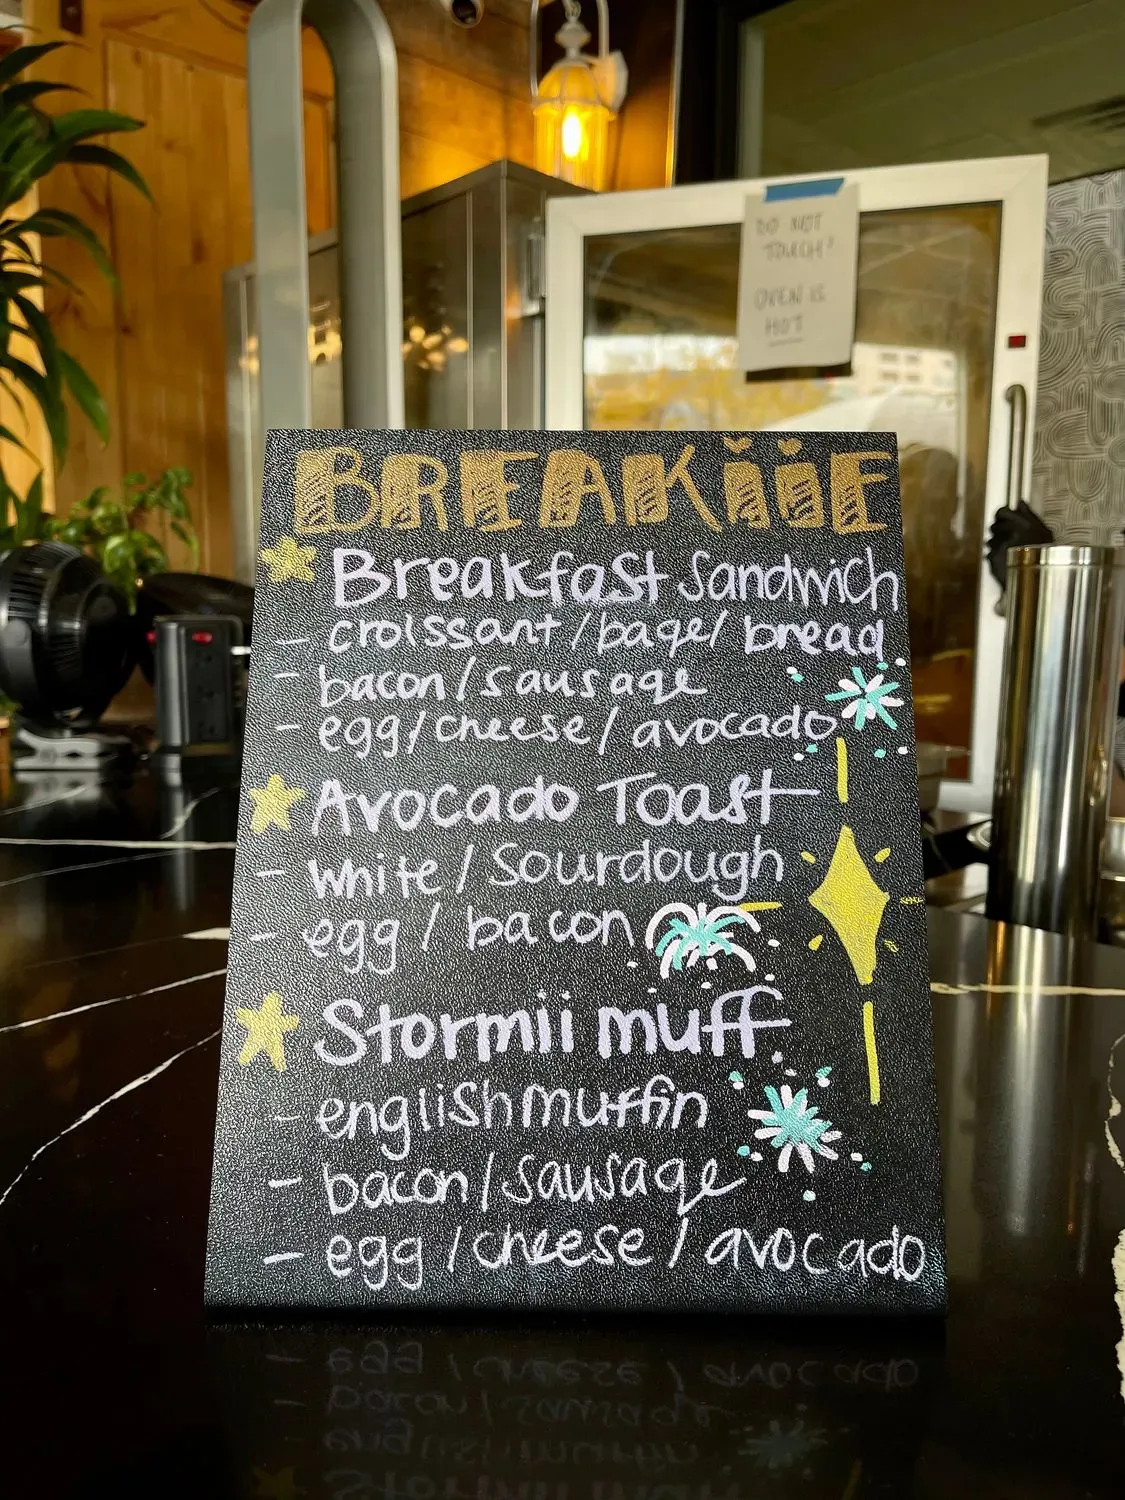 DO NOT
TOUCH!
OVEN IS
HOT
BREAKiiE
Breakfast Sandwich
- croissant/bagel bread
- bacon/sausage
- egg/cheese/avocado
Avocado Toast
- White/Sourdough
- egg/bacon
Stormii muff
- english muffin
- bacon/sausage
- egg/cheese/avocado